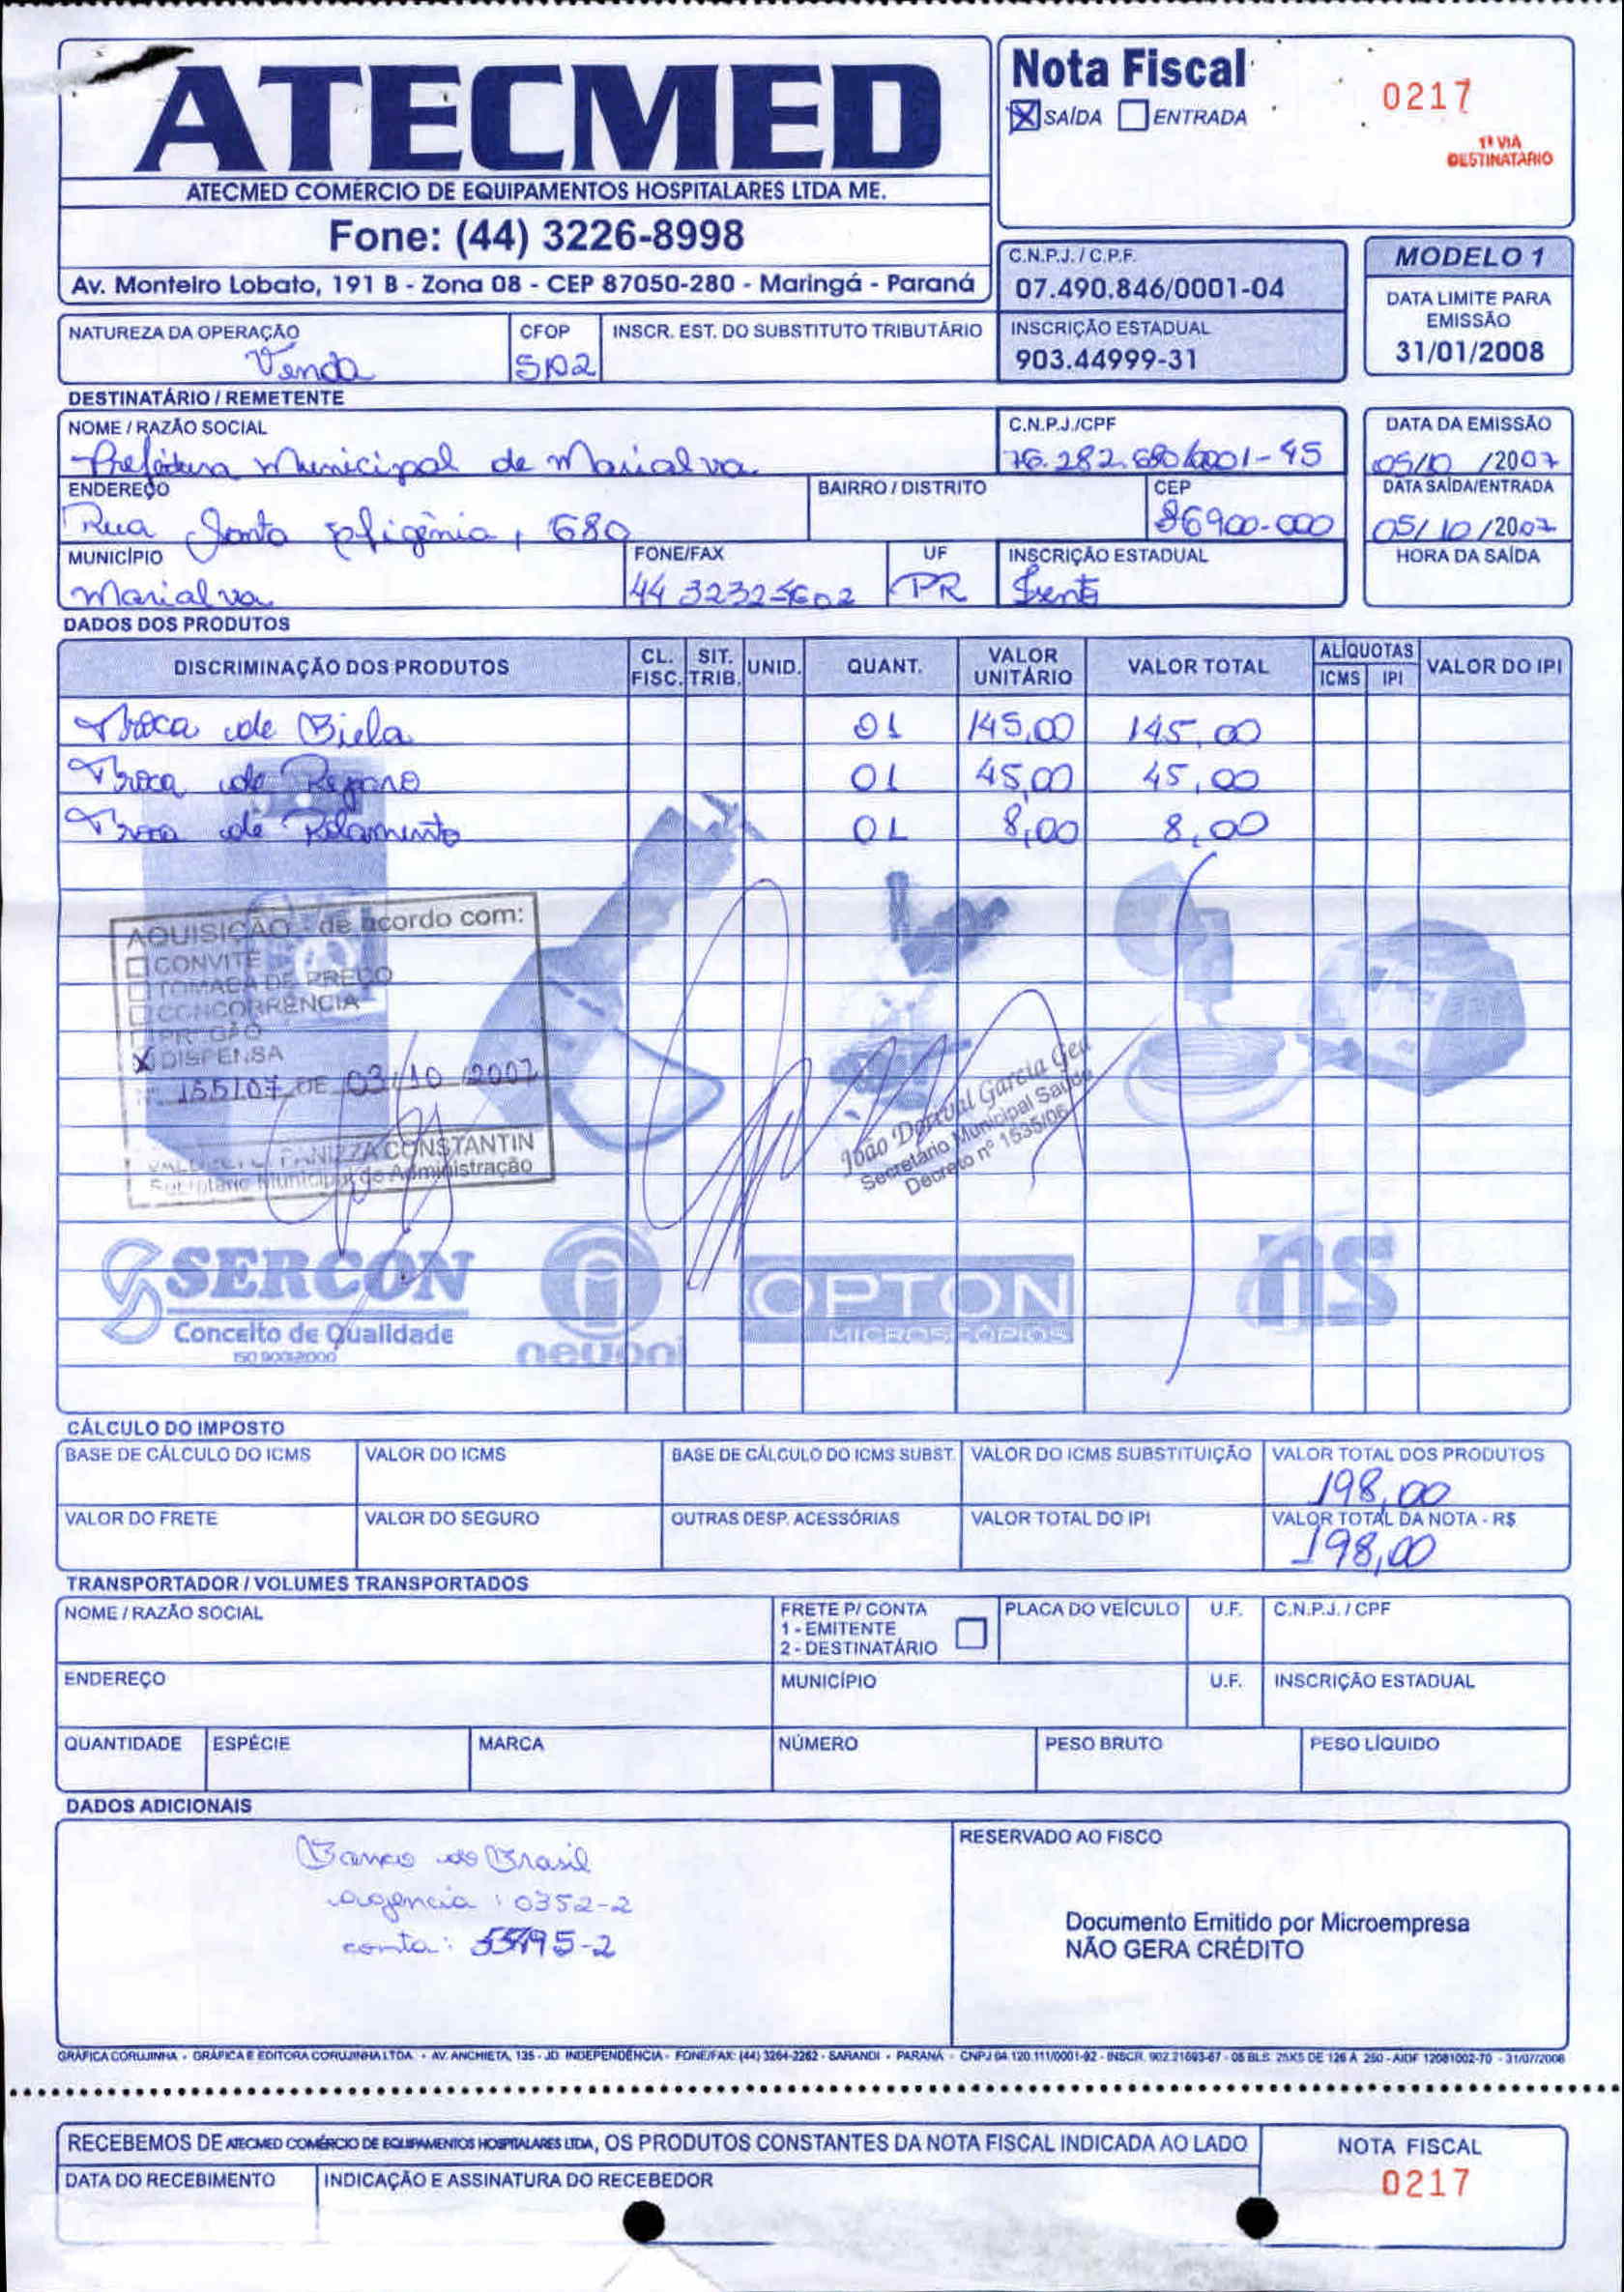 ATECMED
ATECMED COMÉRCIO DE EQUIPAMENTOS HOSPITALARES LTDA ME.
Fone: (44) 3226-8998
Av. Monteiro Lobato, 191 B - Zona 08 - CEP 87050-280 - Maringá - Paraná
Nota Fiscal
SAÍDA ENTRADA
0217
1ª VIA
DESTINATÁRIO
C.N.P.J. / C.P.F.
07.490.846/0001-04
INSCRIÇÃO ESTADUAL
903.44999-31
MODELO 1
DATA LIMITE PARA
EMISSÃO
31/01/2008
NATUREZA DA OPERAÇÃO CFOP INSCR. EST. DO SUBSTITUTO TRIBUTÁRIO
Venda 5102
DESTINATÁRIO / REMETENTE
NOME / RAZÃO SOCIAL C.N.P.J./CPF DATA DA EMISSÃO
Prefeitura Municipal de Marialva 76.282.680/0001-45 05/10 /2007
ENDEREÇO BAIRRO / DISTRITO CEP DATA SAÍDA/ENTRADA
Rua Santa Efigênia, 680 86900-000 05/10/2007
MUNICÍPIO FONE/FAX UF INSCRIÇÃO ESTADUAL HORA DA SAÍDA
Marialva 44 32325602 PR Isento
DADOS DOS PRODUTOS
DISCRIMINAÇÃO DOS PRODUTOS CL. FISC. SIT. TRIB. UNID. QUANT. VALOR UNITÁRIO VALOR TOTAL ALÍQUOTAS ICMS IPI VALOR DO IPI
Troca de Biela 01 145,00 145,00
Troca de Reparo 01 45,00 45,00
Troca de Rolamento 01 8,00 8,00
AQUISIÇÃO - de acordo com:
CONVITE
TOMADA DE PREÇO
CONCORRÊNCIA
PREGÃO
X DISPENSA
Nº 155/07 DE 03/10/2007
PANIZZA CONSTANTIN
Secretário Municipal de Administração
João Dorival Garcia
Secretário Municipal Saúde
Decreto nº 1535/06
SERCON
Conceito de Qualidade
ISO 9001:2000
nevoni
OPTON
MICROSCÓPIOS
NS
CÁLCULO DO IMPOSTO
BASE DE CÁLCULO DO ICMS VALOR DO ICMS BASE DE CÁLCULO DO ICMS SUBST. VALOR DO ICMS SUBSTITUIÇÃO VALOR TOTAL DOS PRODUTOS
198,00
VALOR DO FRETE VALOR DO SEGURO OUTRAS DESP. ACESSÓRIAS VALOR TOTAL DO IPI VALOR TOTAL DA NOTA - R$
198,00
TRANSPORTADOR / VOLUMES TRANSPORTADOS
NOME / RAZÃO SOCIAL FRETE P/ CONTA PLACA DO VEÍCULO U.F. C.N.P.J. / CPF
1 - EMITENTE
2 - DESTINATÁRIO
ENDEREÇO MUNICÍPIO U.F. INSCRIÇÃO ESTADUAL
QUANTIDADE ESPÉCIE MARCA NÚMERO PESO BRUTO PESO LÍQUIDO
DADOS ADICIONAIS
Banco do Brasil
agencia : 0352-2
conta:
RESERVADO AO FISCO
Documento Emitido por Microempresa
NÃO GERA CRÉDITO
GRÁFICA CORUJINHA - GRÁFICA E EDITORA CORUJINHA LTDA. - AV. ANCHIETA, 135 - JD. INDEPENDÊNCIA - FONE/FAX: (44) 3264-2262 - SARANDI - PARANÁ - CNPJ 04.120.111/0001-92 - INSCR. 902.21693-67 - 05 BLS. 25X5 DE 126 A 250 - AIDF 12081002-70 - 31/07/2006
RECEBEMOS DE ATECMED COMÉRCIO DE EQUIPAMENTOS HOSPITALARES LTDA, OS PRODUTOS CONSTANTES DA NOTA FISCAL INDICADA AO LADO
DATA DO RECEBIMENTO INDICAÇÃO E ASSINATURA DO RECEBEDOR
NOTA FISCAL
0217